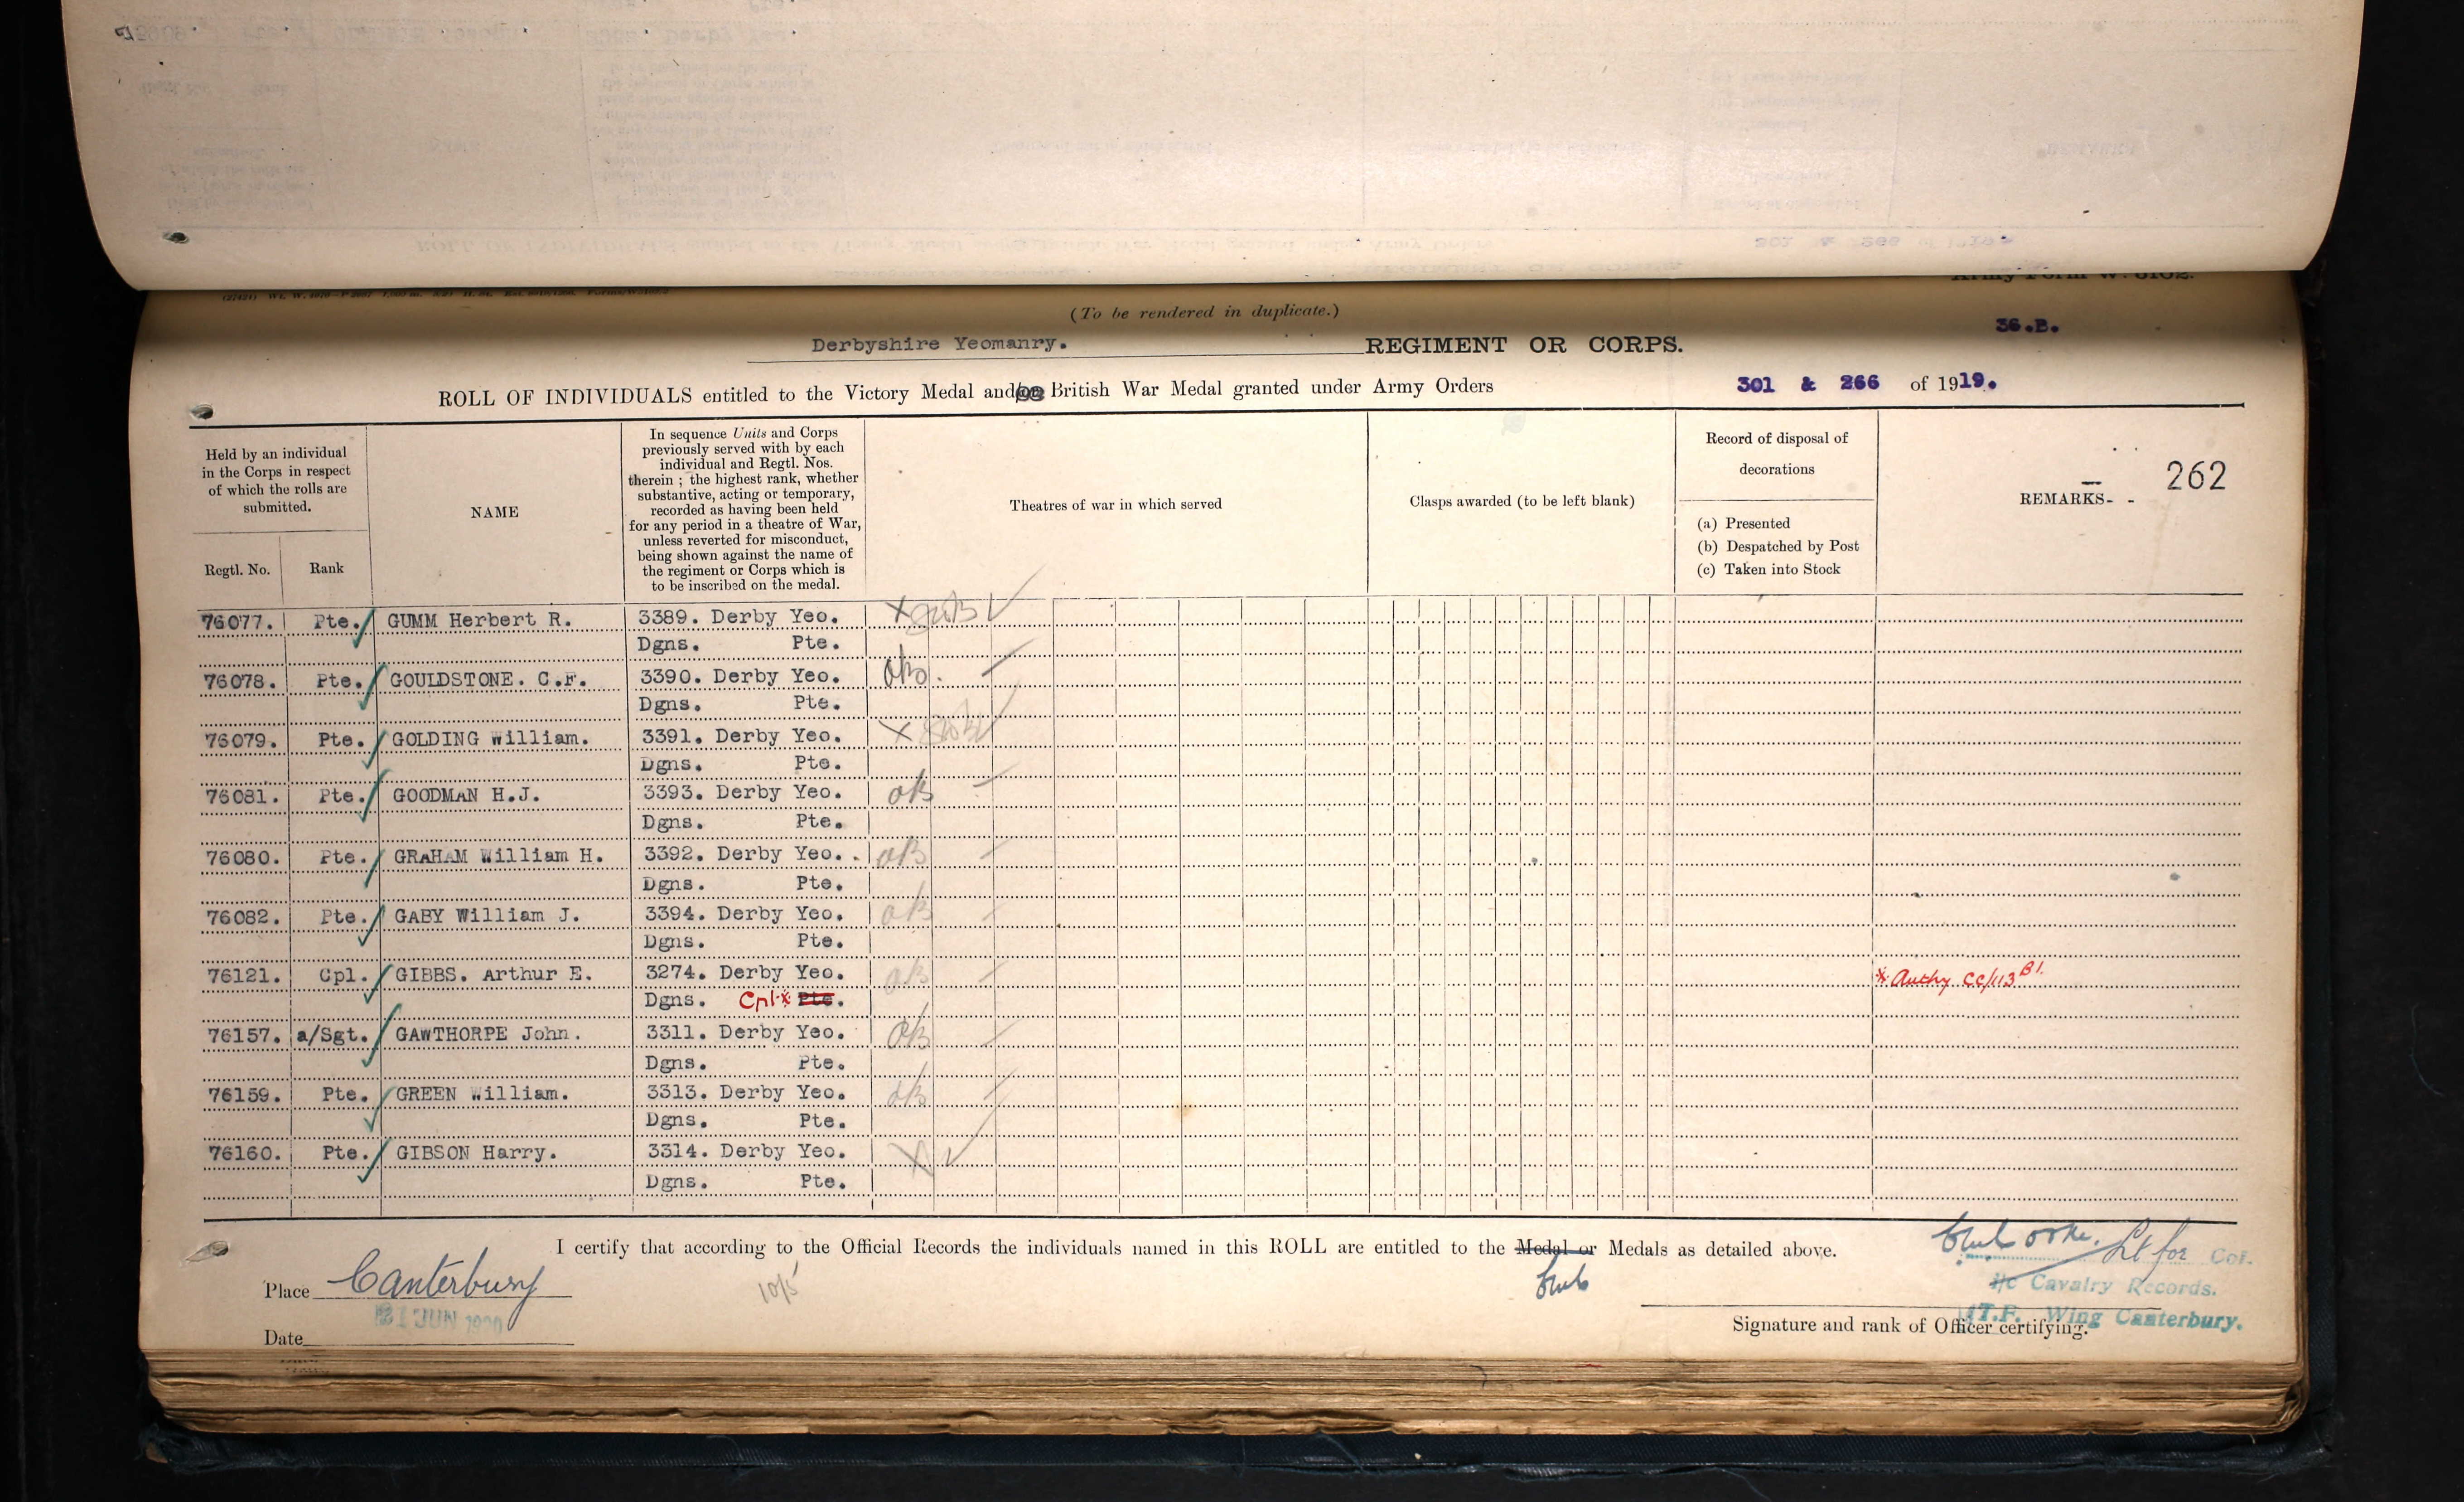 (To be rendered in duplicate.)
36.B.
Derbyshire Yeomanry. REGIMENT OR CORPS.
ROLL OF INDIVIDUALS entitled to the Victory Medal and/or British War Medal granted under Army Orders 301 & 266 of 1919.
Held by an individual
in the Corps in respect
of which the rolls are
submitted.
Regtl. No.
Rank
NAME
In sequence Units and Corps
previously served with by each
individual and Regtl. Nos.
therein ; the highest rank, whether
substantive, acting or temporary,
recorded as having been held
for any period in a theatre of War,
unless reverted for misconduct,
being shown against the name of
the regiment or Corps which is
to be inscribed on the medal.
Theatres of war in which served
Clasps awarded (to be left blank)
Record of disposal of
decorations
(a) Presented
(b) Despatched by Post
(c) Taken into Stock
REMARKS- -
262
76077. Pte. GUMM Herbert R. 3389. Derby Yeo. X
Dgns. Pte.
76078. Pte. GOULDSTONE. C.F. 3390. Derby Yeo.
Dgns. Pte.
76079. Pte. GOLDING William. 3391. Derby Yeo. X
Dgns. Pte.
76081. Pte. GOODMAN H.J. 3393. Derby Yeo.
Dgns. Pte.
76080. Pte. GRAHAM William H. 3392. Derby Yeo.
Dgns. Pte.
76082. Pte. GABY William J. 3394. Derby Yeo.
Dgns. Pte.
76121. Cpl. GIBBS. Arthur E. 3274. Derby Yeo. x Authy CC/113 B1.
Dgns. Cpl.x Pte.
76157. a/Sgt. GAWTHORPE John. 3311. Derby Yeo.
Dgns. Pte.
76159. Pte. GREEN William. 3313. Derby Yeo.
Dgns. Pte.
76160. Pte. GIBSON Harry. 3314. Derby Yeo. X
Dgns. Pte.
I certify that according to the Official Records the individuals named in this ROLL are entitled to the Medal or Medals as detailed above.
Lt for Col.
I/c Cavalry Records.
T.F. Wing Canterbury.
Place Canterbury
21 JUN 1920
Date
Signature and rank of Officer certifying.